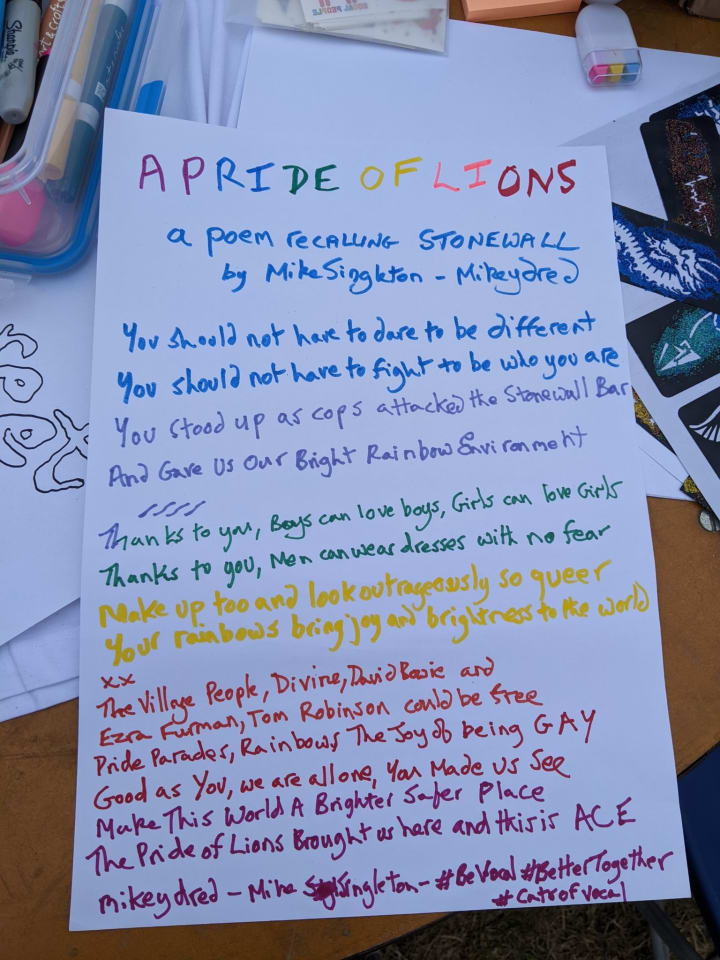 Sharpie
REAL PEOPLE
A PRIDE OF LIONS
a poem recalling STONEWALL
by Mike Singleton - Mikeydred
You should not have to dare to be different
You should not have to fight to be who you are
You stood up as cops attacked the Stonewall Bar
And Gave Us Our Bright Rainbow Environment
Thanks to you, Boys can love boys, Girls can love Girls
Thanks to you, Men can wear dresses with no fear
Make up too and look outrageously so queer
Your rainbows bring joy and brightness to the world
xx
The Village People, Divine, David Bowie and
Ezra Furman, Tom Robinson could be free
Pride Parades, Rainbows The Joy of being GAY
Good as You, we are all one, You Made us See
Make This World A Brighter Safer Place
The Pride of Lions Brought us here and this is ACE
mikeydred - Mike Singleton - #BeVocal #BetterTogether
#CatsofVocal